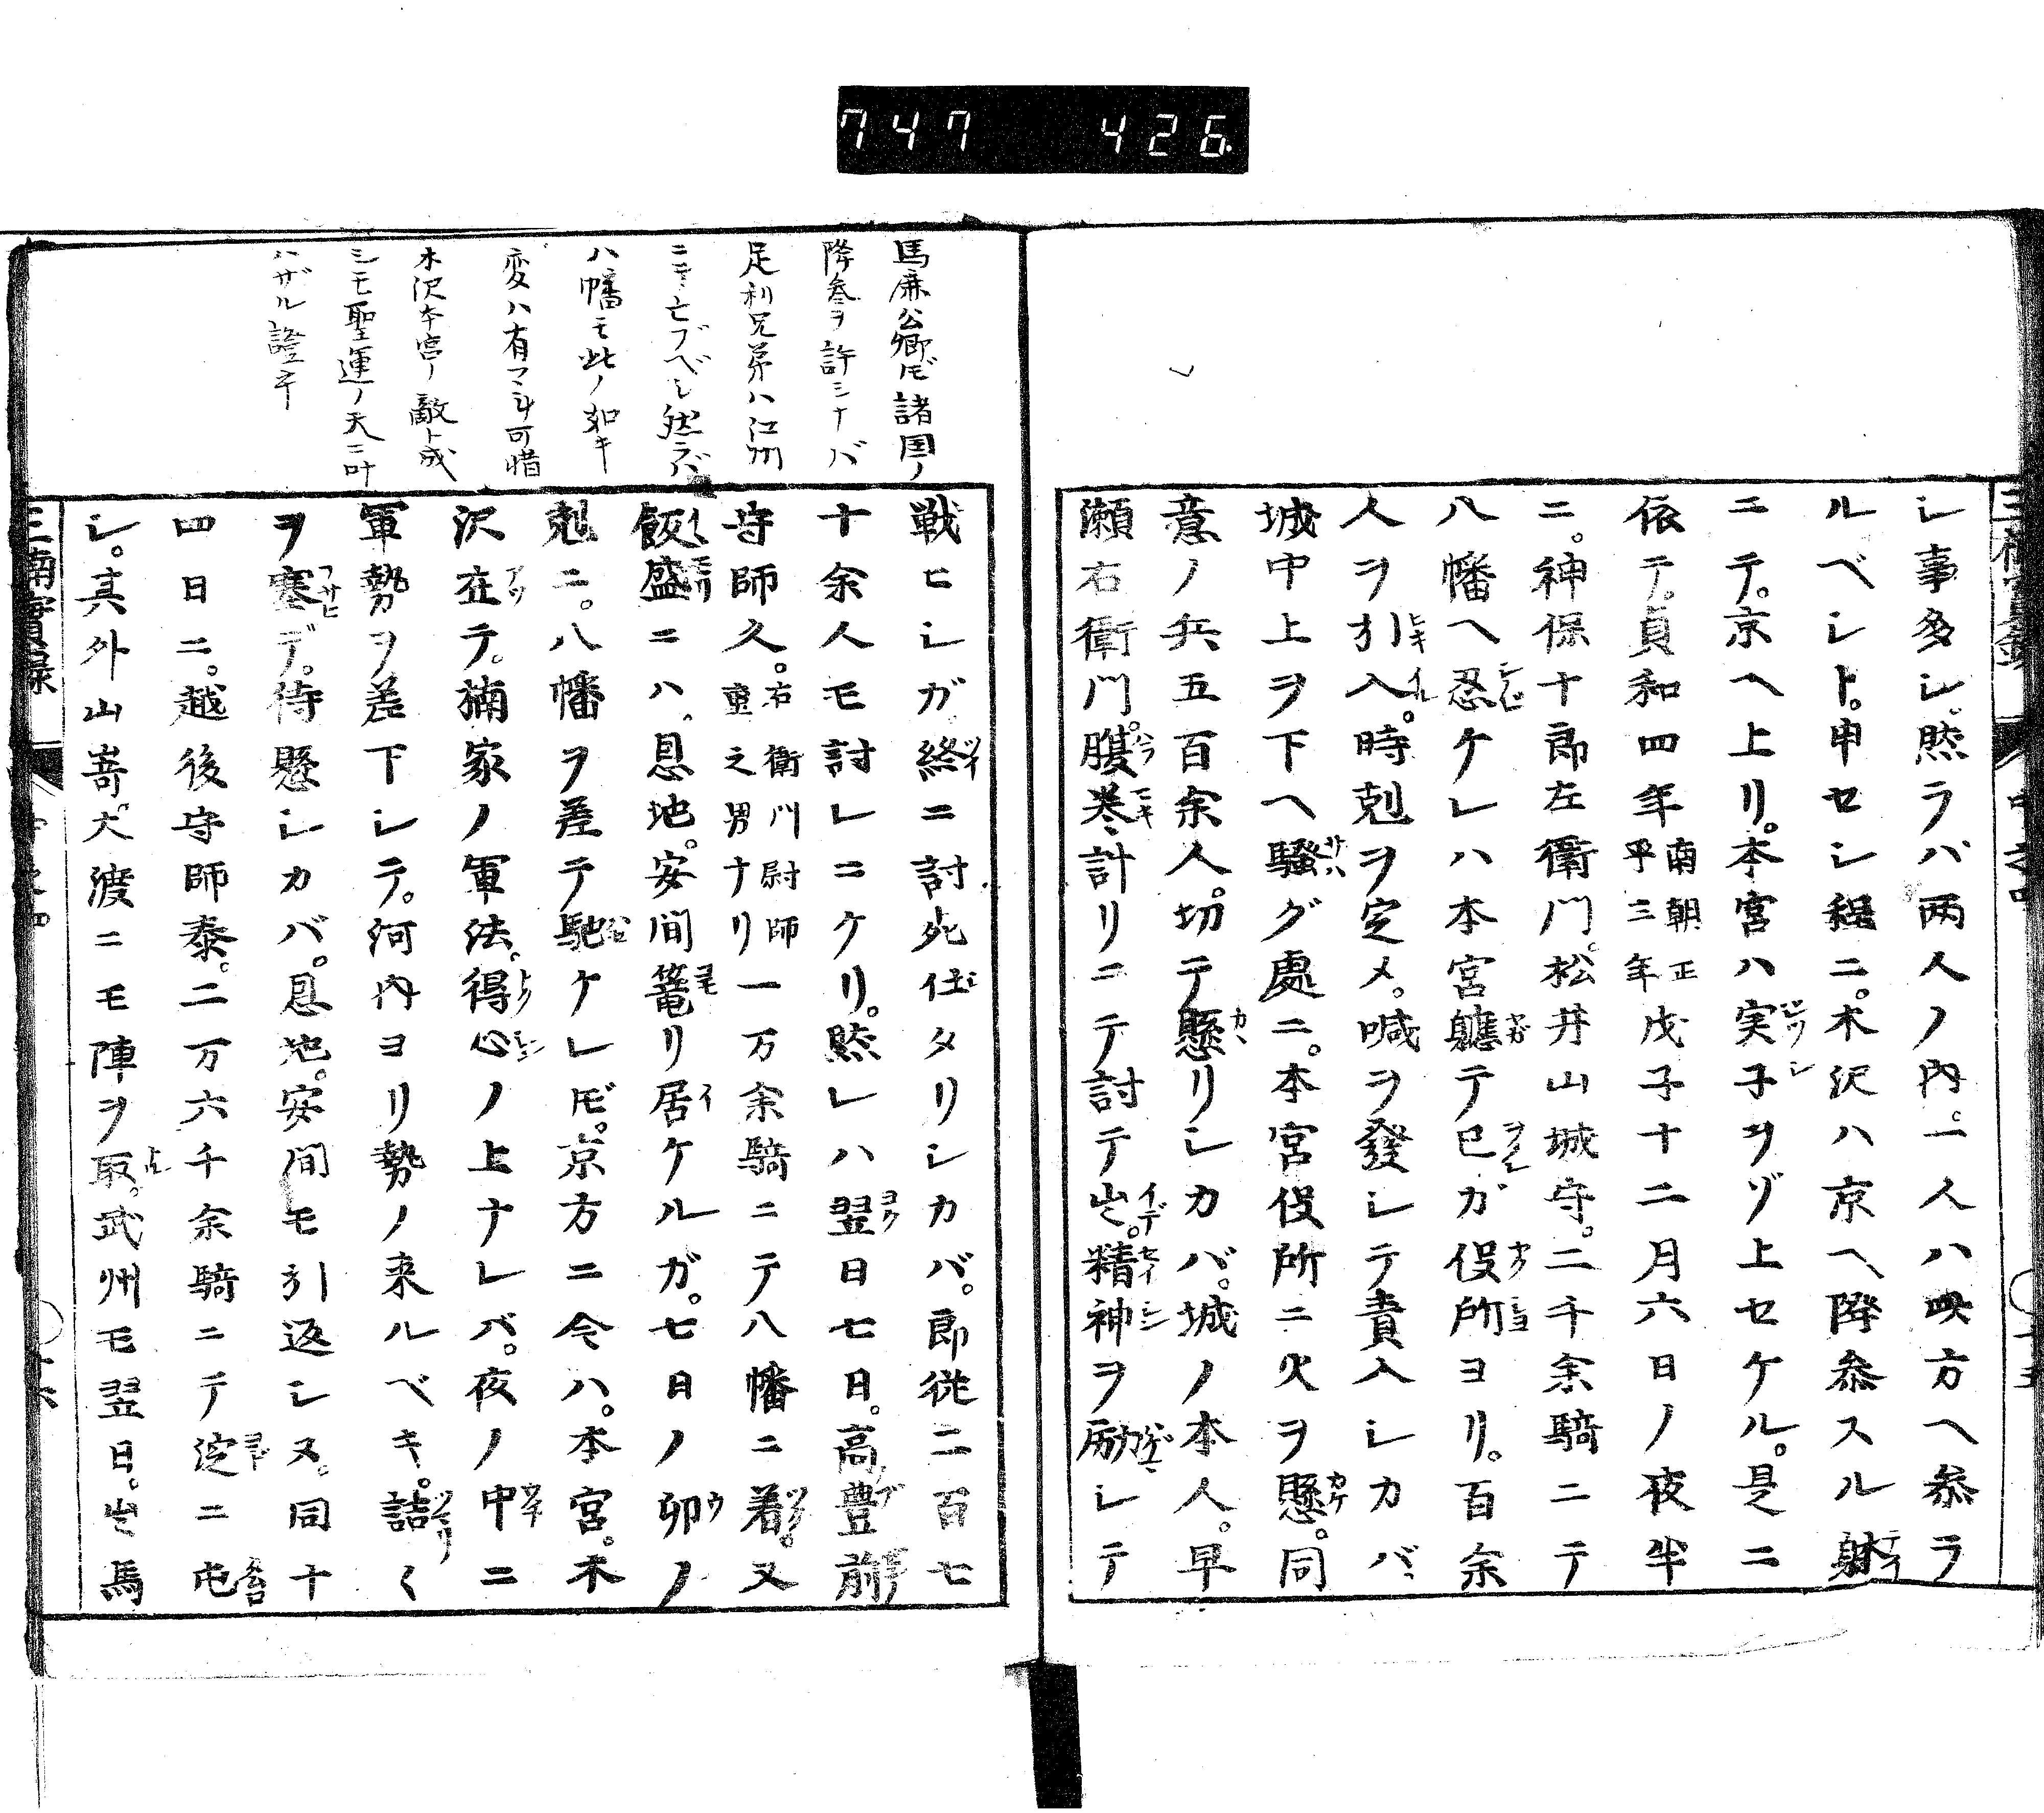 747 426
シ事多シ。然ラバ両人ノ内。一人ハ吠方ヘ参ラ
ルベシト。申セシ程ニ。木沢ハ京ヘ降参スル躰
ニテ。京ヘ上リ。本宮ハ実子ヲゾ上セケル。是ニ
依テ。貞和四年南朝正平三年戊子十二月六日ノ夜半
ニ。神保十郎左衛門。松井山城守。二千余騎ニテ
八幡ヘ忍ケレハ本宮軈テ已ガ役所ヨリ。百余
人ヲ引入。時剋ヲ定メ。喊ヲ發シテ責入シカバ、
城中上ヲ下ヘ騒グ處ニ。本宮役所ニ火ヲ懸。同
意ノ兵五百余人。切テ懸リシカバ。城ノ本人。早
瀬右衛門。腹巻計リニテ討テ出。精神ヲ励シテ
馬廉公卿ㇳモ諸国ノ
降参ヲ許シナバ
足利兄弟ハ江州
ニテ亡ブベシ然ラバ
八幡モ此ノ如キ
変ハ有マシ可惜
木沢本宮ノ敵ト成
シモ聖運ノ天ニ叶
ハザル證
戦ヒシガ終ニ討死仕タリシカバ。郎従二百七
十余人モ討レニケリ。然レハ翌日七日。高豊前
守師久。右衛門尉師重之男ナリ一万余騎ニテ八幡ニ着。又
飯盛ニハ。恩地。安間篭リ居ケルガ。七日ノ卯ノ
剋ニ。八幡ヲ差テ馳ケレㇳモ。京方ニ令ハ。本宮。木
沢在テ。楠家ノ軍法。得心ノ上ナレバ。夜ノ中ニ
軍勢ヲ差下シテ。河内ヨリ勢ノ来ルベキ。詰く
ヲ塞デ。待懸シカバ。恩地。安間モ引返シヌ。同十
四日ニ。越後守師泰。二万六千余騎ニテ淀ニ屯
シ。其外山嵜。大渡ニモ陣ヲ取。武州モ翌日。出馬
三楠實録